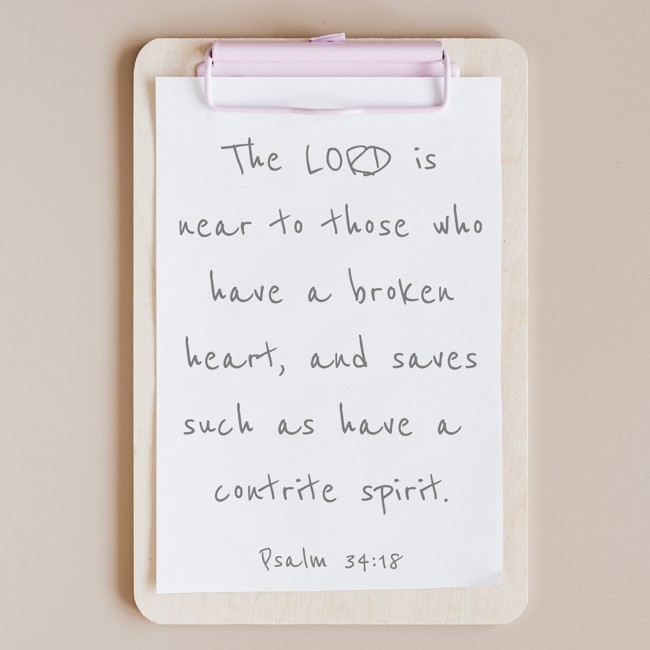 The LORD is
near to those who
have a broken
heart, and saves
such as have a
contrite spirit.
Psalm 34:18